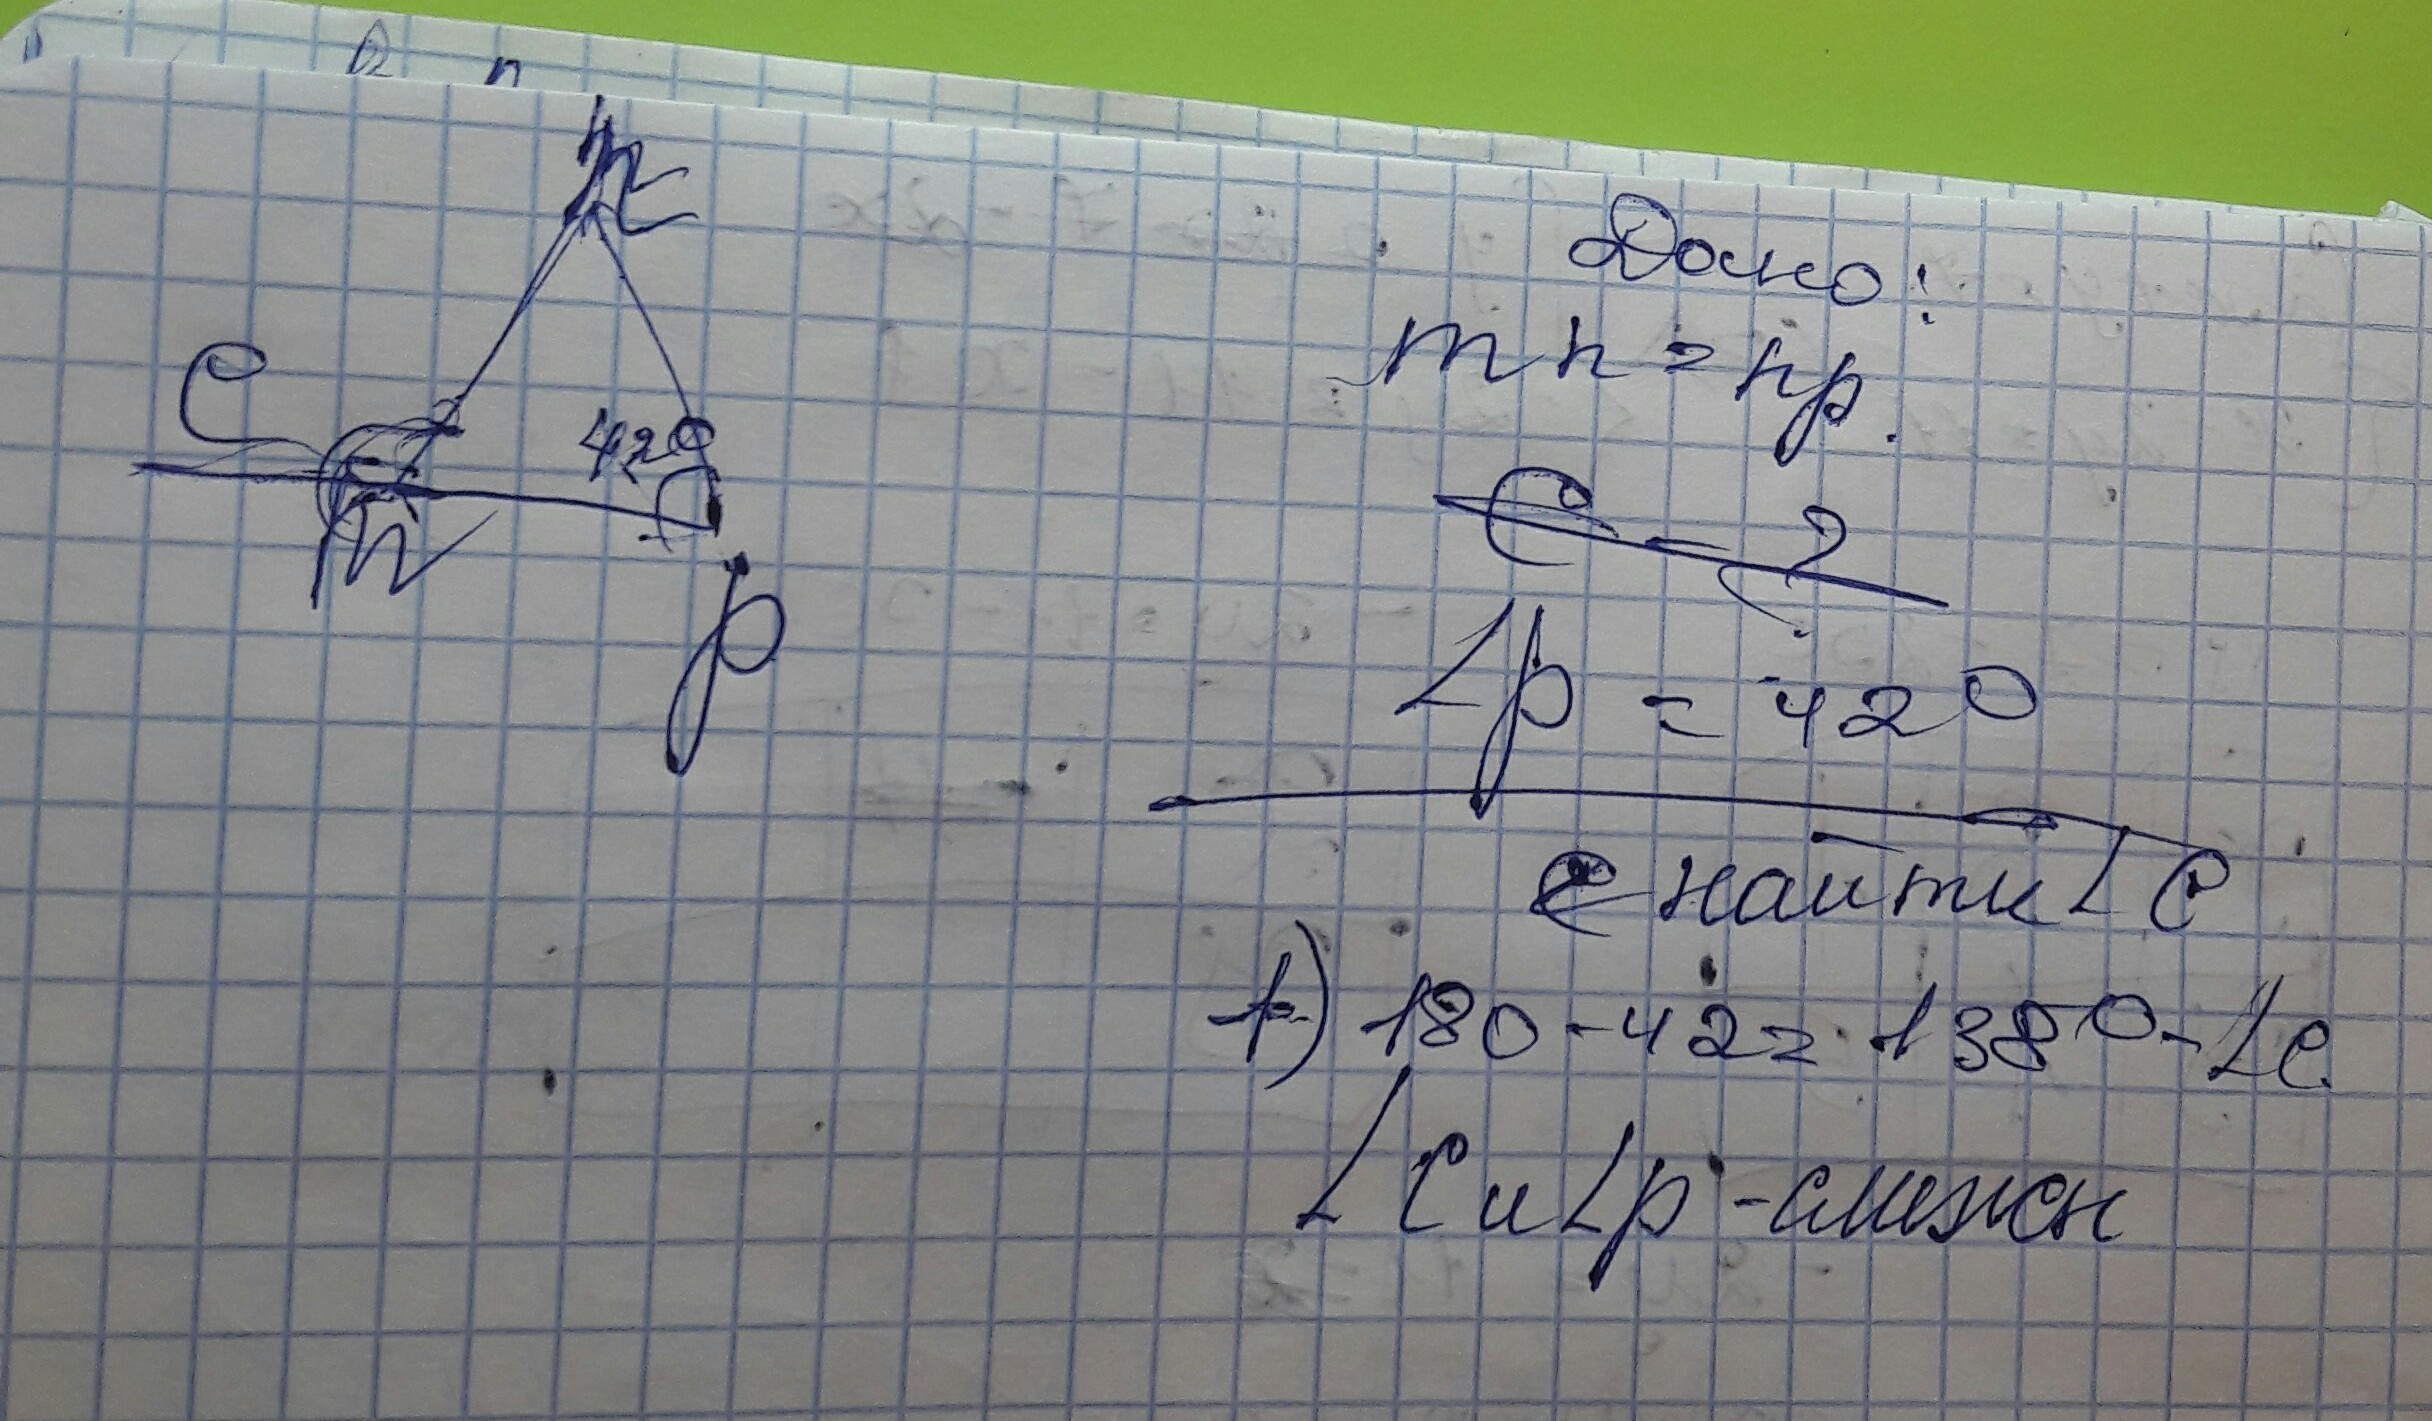 n
C
42°
m
p
Дано:
mn = np.
C - ?
∠p = 42°
найти ∠C
1) 180 - 42 = 138° - ∠C.
∠C и ∠p - смежн